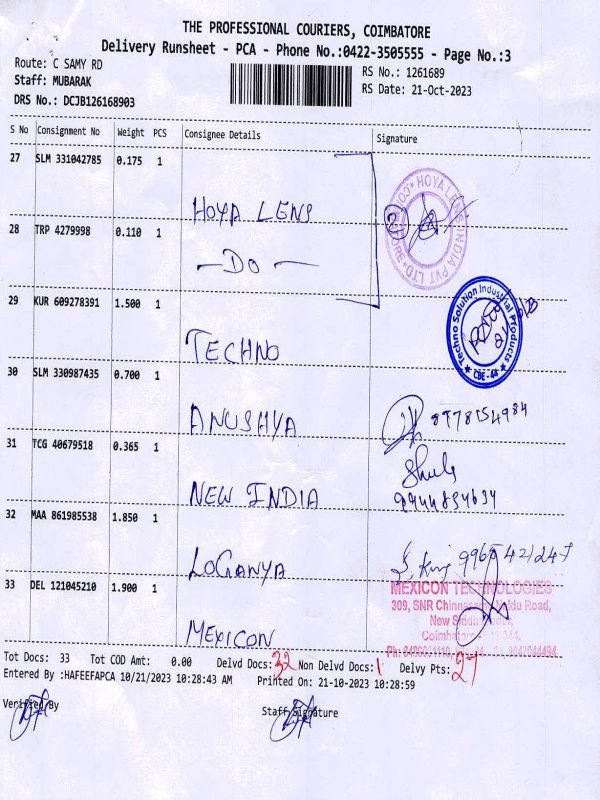 THE PROFESSIONAL COURIERS, COIMBATORE
Delivery Runsheet - PCA - Phone No.:0422-3505555 - Page No.:3
Route: C SAMY RD
RS No.: 1261689
Staff: MUBARAK
RS Date: 21-Oct-2023
DRS No.: DCJB126168903
S No Consignment No Weight PCS Consignee Details Signature
27 SLM 331042785 0.175 1
HOYA LENS
HOYA LENS INDIA PVT LTD
2
28 TRP 4279998 0.110 1
—DO—
29 KUR 609278391 1.500 1
TECHNO
Techno Solution Industrial Products
CBE-44
30 SLM 330987435 0.700 1
ANUSHYA
8778154984
31 TCG 40679518 0.365 1
NEW INDIA
32 MAA 861985538 1.850 1
LOGANYA
33 DEL 121045210 1.900 1
MEXICON TECHNOLOGIES
309, SNR Chinnasamy Naidu Road,
MEXICON
Tot Docs: 33 Tot COD Amt: 0.00 Delvd Docs: 32 Non Delvd Docs: 1 Delvy Pts: 27
Entered By :HAFEEFAPCA 10/21/2023 10:28:43 AM Printed On: 21-10-2023 10:28:59
Verified By Staff Signature